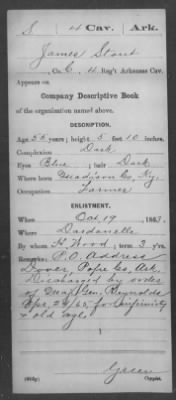 S | 4 Cav. | Ark.
James Stout
Co. C, 4 Reg't Arkansas Cav.
Appears on
Company Descriptive Book
of the organization named above.
DESCRIPTION.
Age 55 years; height 5 feet 10 inches.
Complexion Dark
Eyes Blue; hair Dark
Where born Madison Co, Ky.
Occupation Farmer
ENLISTMENT.
When Oct 19, 1863.
Where Dardanelle
By whom H. Wood; term 3 y'rs.
Remarks: P.O. Address
Dover, Pope Co. Ark.
Discharged by order
of Maj. Gen. Reynolds
Apr. 24/65, for infirmity
& old age.
Green
Copyist.